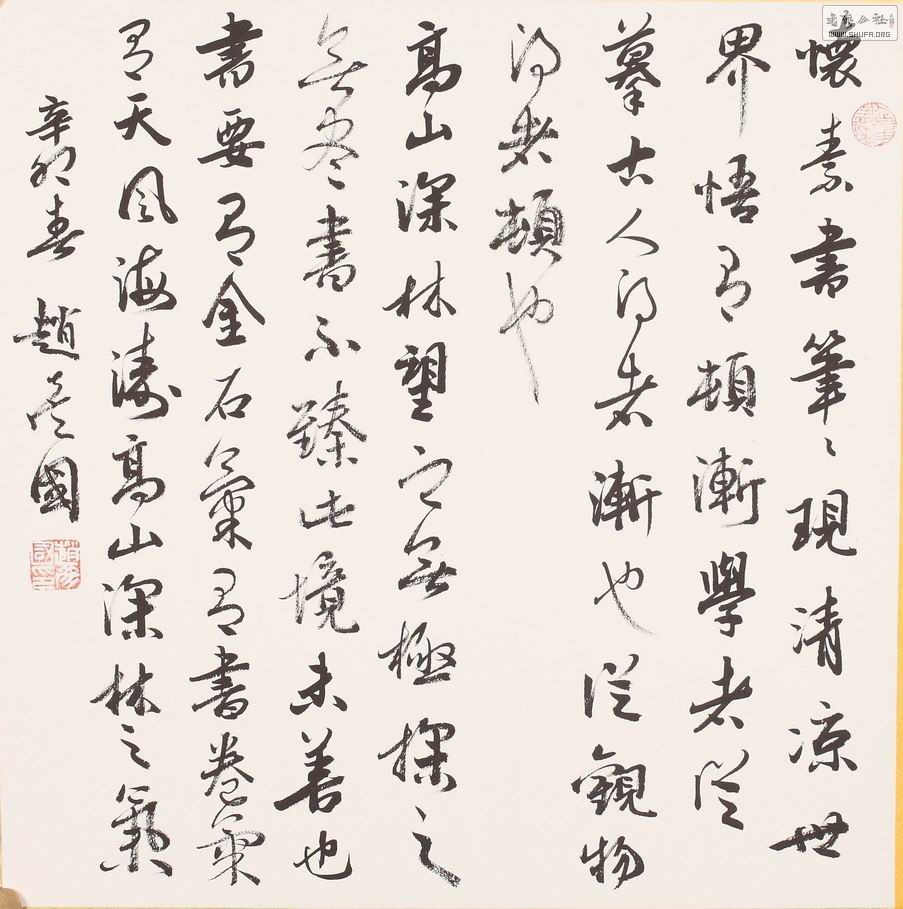 懷素書筆〻現清涼世
界悟有頓漸學者從
摹古人得者漸也從觀物
得者頓也
高山深林望之無極探之
無盡書不臻此境未善也
書要有金石氣有書卷氣
有天風海濤高山深林之氣
辛卯春 趙國
WWW.SHUFA.ORG